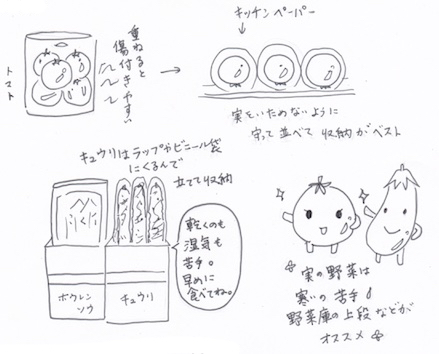 キッチンペーパー
重ねると
傷付きやすい
トマト
実をいためないように
守って並べて収納がベスト
キュウリはラップやビニール袋
にくるんで
立てて収納
乾くのも
湿気も
苦手。
早めに
食べてね。
ホウレン
ソウ
キュウリ
実の野菜は
寒いの苦手
野菜庫の上段などが
オススメ